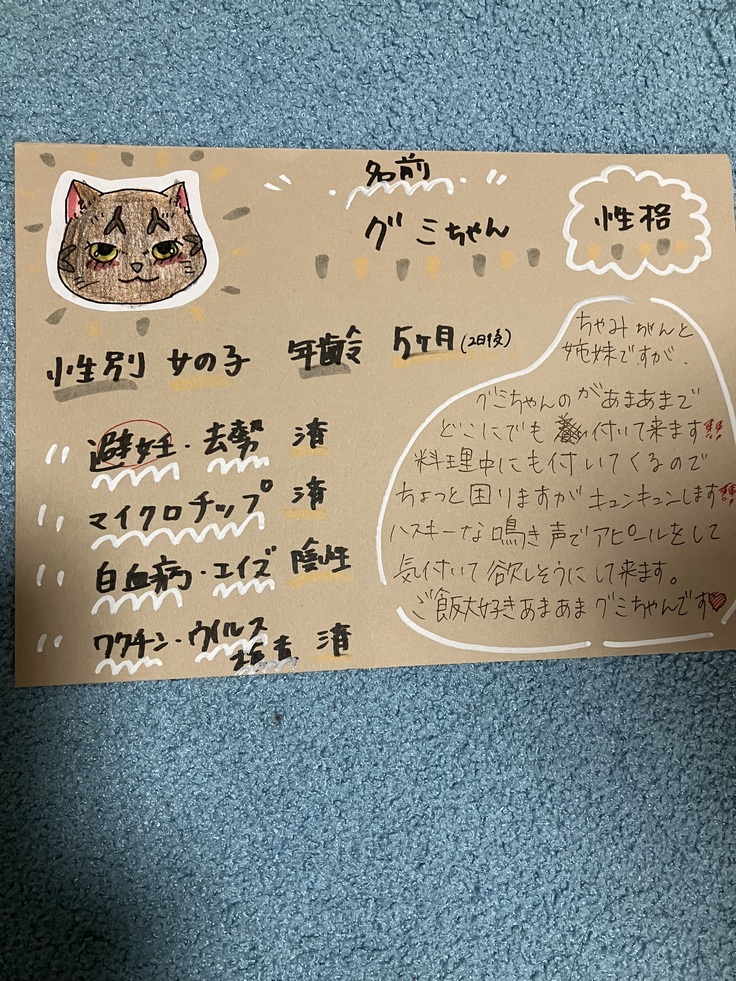 名前
グミちゃん
性格
性別 女の子 年齢 5ヶ月(2日後)
避妊・去勢 済
マイクロチップ 済
白血病・エイズ 陰性
ワクチン・ウイルス
済
ちゃみがんと
姉妹ですが、
グミちゃんのがあまあまで
どこにでも付いて来ます!!
料理中にも付いてくるので
ちょっと困りますがキュンキュンします!!
ハスキーな鳴き声でアピールをして
気付いて欲しそうにして来ます。
ご飯大好きあまあまグミちゃんです♥